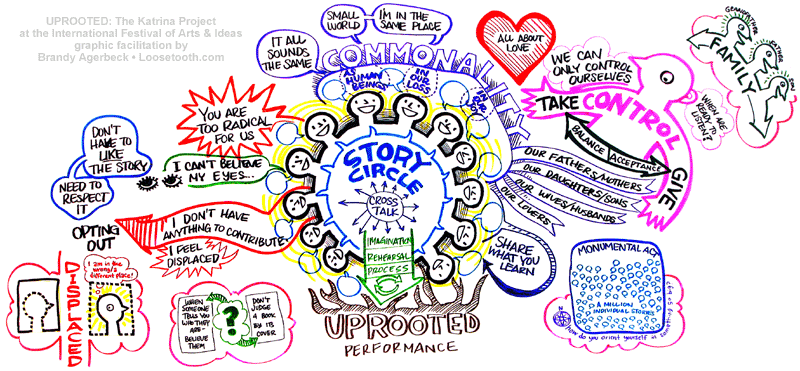 UPROOTED: The Katrina Project
at the International Festival of Arts & Ideas
graphic facilitation by
Brandy Agerbeck • Loosetooth.com
IT ALL
SOUNDS
THE SAME
SMALL
WORLD
I'M IN THE
SAME PLACE
COMMONALITY
AS
HUMAN
BEINGS
IN
OUR
LOSS
IN
OUR
ALL ABOUT
LOVE
WE CAN
ONLY CONTROL
OURSELVES
TAKE CONTROL
GIVE
BALANCE
ACCEPTANCE
WHEN ARE
READY TO
LISTEN?
GRANDFATHER
FATHER
SON
FAMILY
YOU ARE
TOO RADICAL
FOR US
DON'T
HAVE TO
LIKE
THE STORY
NEED TO
RESPECT
IT
I CAN'T BELIEVE
MY EYES...
STORY
CIRCLE
CROSS
TALK
OUR FATHERS/MOTHERS
OUR DAUGHTERS/SONS
OUR WIVES/HUSBANDS
OUR LOVERS
I DON'T HAVE
ANYTHING TO CONTRIBUTE
OPTING
OUT
I FEEL
DISPLACED
IMAGINATION
REHEARSAL
PROCESS
SHARE
WHAT YOU
LEARN
MONUMENTAL ACT
A MILLION
INDIVIDUAL STORIES
how do you orient yourself
DISPLACED
I am in the
wrong/a
different place!
WHEN
SOMEONE
TELLS YOU
WHO THEY
ARE -
BELIEVE
THEM
?
DON'T
JUDGE
A BOOK
BY ITS
COVER
UPROOTED
PERFORMANCE